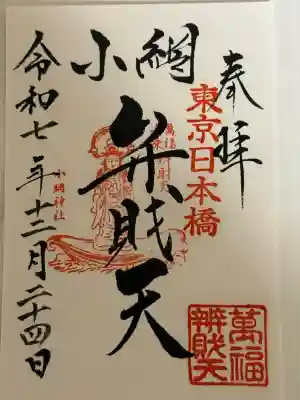 奉拝
東京日本橋
小網
弁財天
萬福
辨財天
小網神社
令和七年十二月二十四日